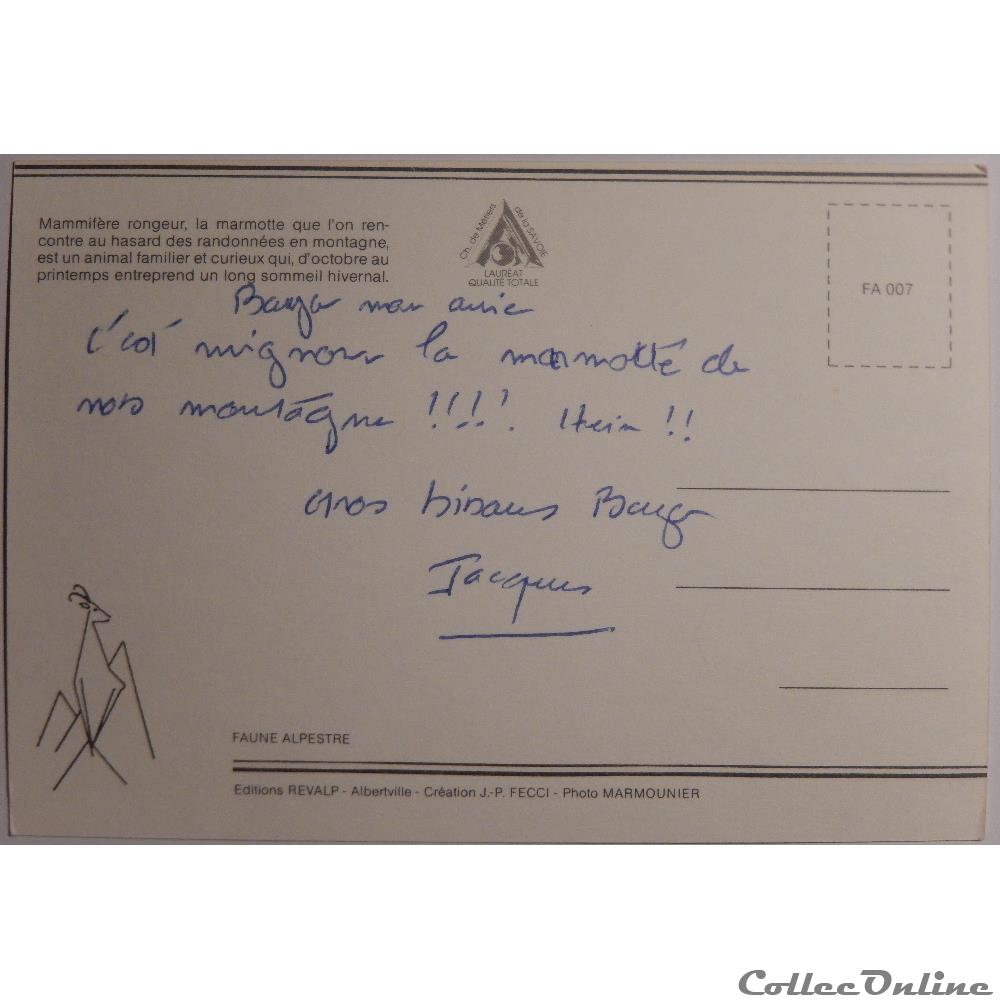 Mammifère rongeur, la marmotte que l'on ren-
contre au hasard des randonnées en montagne,
est un animal familier et curieux qui, d'octobre au
printemps entreprend un long sommeil hivernal.
Ch. de Métiers de la SAVOIE
LAURÉAT
QUALITÉ TOTALE
FA 007
mon amie
c'est mignon la marmotte de
nos montagne !!!! Hein !!
Gros bisous
Jacques
FAUNE ALPESTRE
Editions REVALP - Albertville - Création J.-P. FECCI - Photo MARMOUNIER
CollecOnline